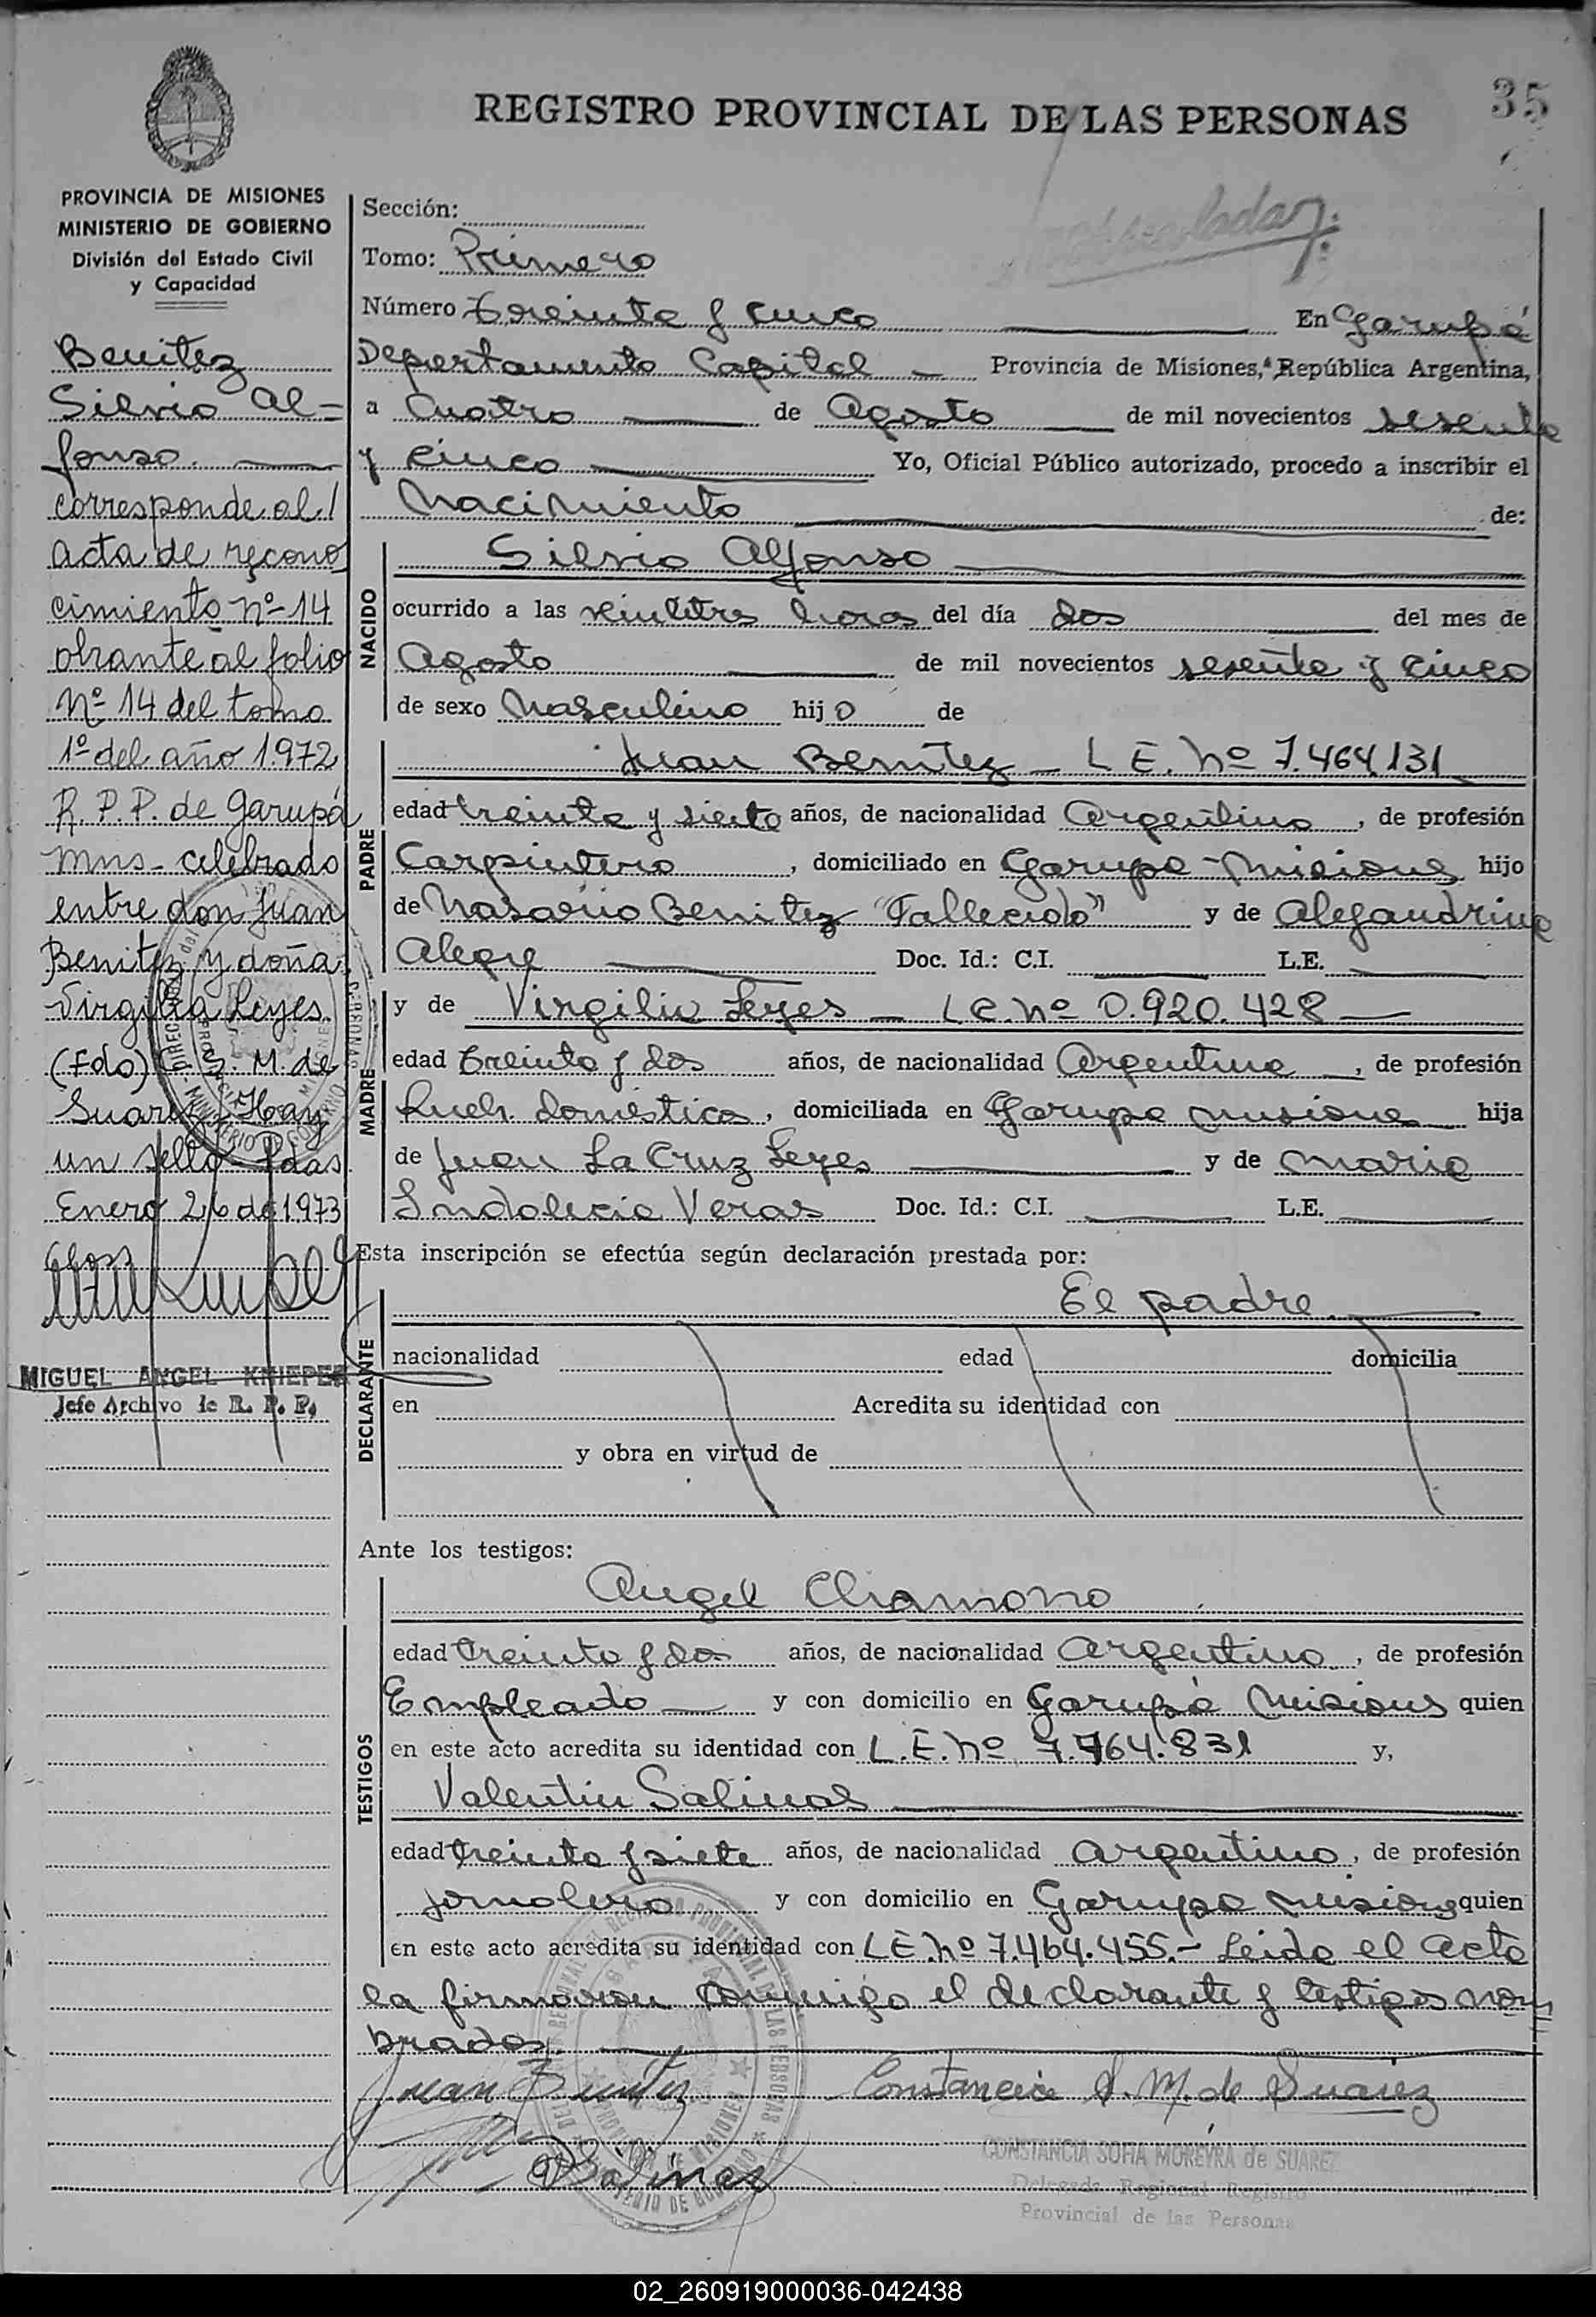 REGISTRO PROVINCIAL DE LAS PERSONAS
35
PROVINCIA DE MISIONES
MINISTERIO DE GOBIERNO
División del Estado Civil
y Capacidad
Benitez
Silvio Al-
fonso.
corresponde al
acta de recono
cimiento nº 14
obrante al folio
Nº 14 del tomo
1º del año 1.972
R. P. P. de Garupá
Mns - celebrado
entre don Juan
Benitez y doña
Virgilia Leyes.
(Fdo) C. S. M. de
Suarez. Hay
un sello - Pdas.
Enero 26 de 1.973
MIGUEL ANGEL KNIEPER
Jefe Archivo de R. P. P.
Sección:
Tomo: Primero
Número treinta y cinco En Garupá
Departamento Capital Provincia de Misiones, República Argentina,
a cuatro de Agosto de mil novecientos sesenta
y cinco Yo, Oficial Público autorizado, procedo a inscribir el
Nacimiento de:
NACIDO
Silvio Alfonso
ocurrido a las veintitres horas del día dos del mes de
Agosto de mil novecientos sesenta y cinco
de sexo Masculino hijo de
PADRE
Juan Benitez - L E. Nº 7.464.131
edad treinta y siete años, de nacionalidad Argentino, de profesión
Carpintero, domiciliado en Garupa - Misiones hijo
de Nasario Benitez "Fallecido" y de Alejandrina
Alegre Doc. Id.: C.I. L.E.
MADRE
y de Virgilia Leyes - L C. Nº 0.920.428
edad treinta y dos años, de nacionalidad Argentina, de profesión
Queh. domésticos, domiciliada en Garupa Misiones hija
de Juan La Cruz Leyes y de Maria
Indalecia Veras Doc. Id.: C.I. L.E.
Esta inscripción se efectúa según declaración prestada por:
DECLARANTE
El padre.
nacionalidad edad domicilia
en Acredita su identidad con
y obra en virtud de
Ante los testigos:
TESTIGOS
Angel Chamorro
edad treinta y dos años, de nacionalidad Argentino, de profesión
Empleado y con domicilio en Garupá Misiones quien
en este acto acredita su identidad con L.E. Nº 7.464.831 y,
Valentin Salinas
edad treinta y siete años, de nacionalidad Argentino, de profesión
Jornalero y con domicilio en Garupa Misiones quien
en este acto acredita su identidad con L E. Nº 7.464.455.- Leida el acta
la firmaron conmigo el declarante y testigos nom
brados.
Juan Benitez Constancia S. M. de Suarez
Salinas
CONSTANCIA SOFIA MOREYRA de SUAREZ
Delegada Regional Registro
Provincial de las Personas
02_260919000036-042438